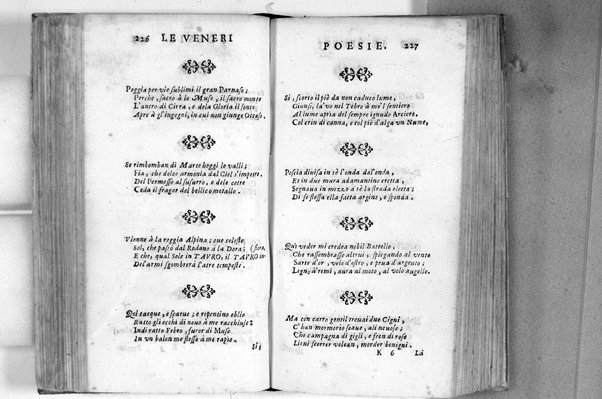 226 LE VENERI
Poggia per vie sublimi il gran Parnaso;
Perche, sacro à le Muse, il sacro monte
L'antro di Cirra, e dela Gloria il fonte
Apre à gl'ingegni, in cui non giunge Occaso.
Se rimbomban di Marte hoggi le valli;
Fia, che dolce armonia dal Ciel s'impetre.
Del Permesso al susurro, e dele cetre
Ceda il fragor del bellico metallo.
Vienne à la reggia Alpina; oue celeste
Sol, che passò dal Rodano à la Dora;
E che, qual Sole in TAVRO, il TAVRO
Del'armi sgombrerà l'atre tempeste.
Quì tacque, e sparue; e repentino oblio
Ratto gli occhi di nouo à me racchiuse:
Indi ratto Febeo, furor di Muse
In vn balen me stesso à me rapio.
Sì,
POESIE. 227
Sì, scorto il piè da non caduco lume,
Giunsi, là've nel Tebro à me'l sentiero
Al lume apria del sempre ignudo Arciero,
Col crin di canna, e col piè d'alga vn Nume,
Poscia diuisa in sè l'onda dal'onda,
Et in due mura adamantine eretta,
Segnaua in mezzo à sè la strada eletta;
Di se stessa ella fatta argine, e sponda.
Quì veder mi credea nobil Battello,
Che rassembrasso altrui, spiegando al vento
Sarte d'or, velo d'ostro, e prua d'argento;
Legno à remi, aura al moto, al volo augello.
Ma con carro gentil trouai due Cigni,
C'han mormorio soaue, ali neuose;
Che campagna di gigli, e fren di rose
Lieui scorrer volean, morder benigni.
K 6 Là